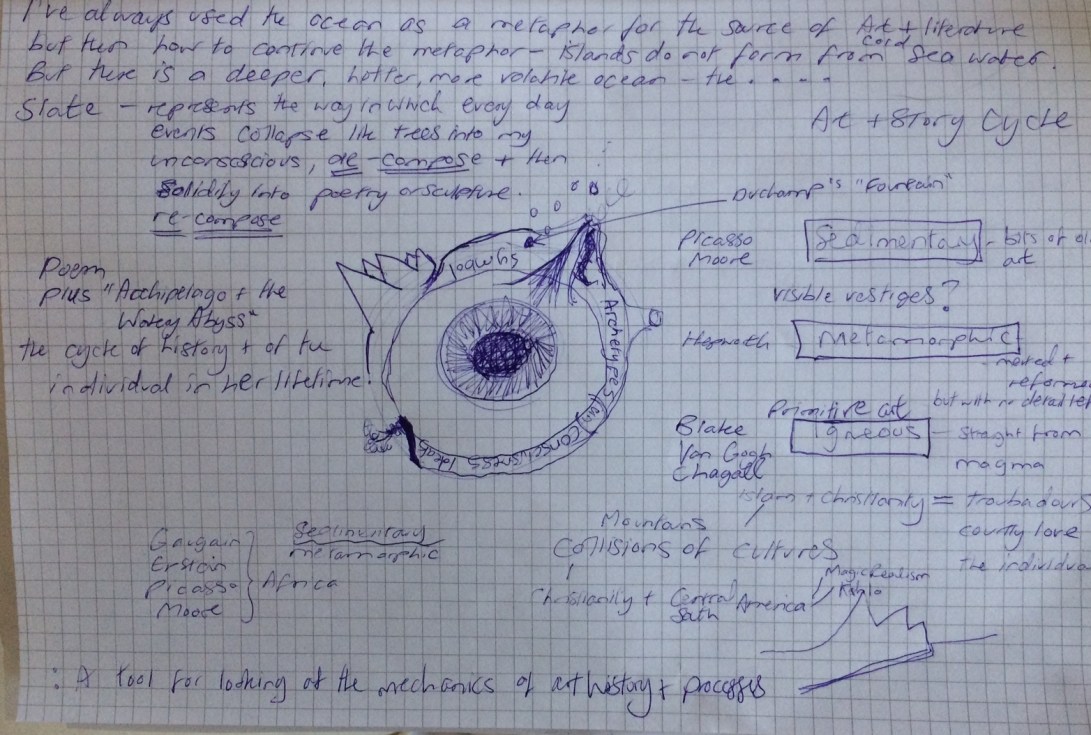 I've always used the ocean as a metaphor for the source of Art + literature
but then how to continue the metaphor - islands do not form from cold sea water.
But there is a deeper, hotter, more volatile ocean - the . . . .
Slate - represents the way in which every day
events collapse like trees into my
unconscious, de-compose + then
solidify into poetry or sculpture.
re-compose
Art + Story Cycle
Duchamp's "Fountain"
Picasso
Moore
Sedimentary - bits of
art
visible vestiges?
Hepworth
Metamorphic
- melted +
but with no detail
Primitive art
Blake
Van Gogh
Chagall
Igneous - straght from
magma
Poem
plus "Archipelago + the
Watery Abyss"
the cycle of history + of the
individual in her lifetime!
Symbol
Archetypes
(un)Consciousness
Ideas
Islam + Christianity = troubadours
courtly love
the individual
Mountains
Collisions of cultures
Christianity + Central
South America
Magic Realism
Kahlo
Gaugain
Picasso
Moore
Africa
Sedimentary
metamorphic
: A tool for looking at the mechanics of art history + processes